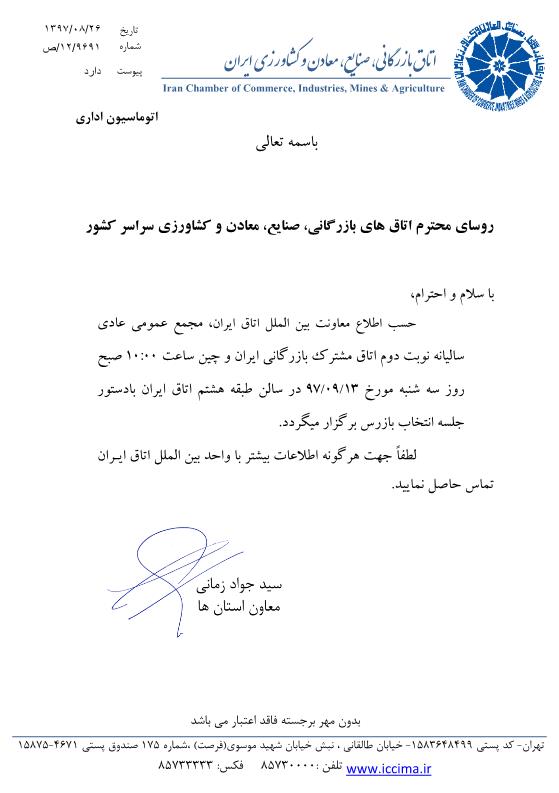 تاریخ ۱۳۹۷/۰۸/۲۶
شماره ۱۲/۹۶۹۱/ص
پیوست دارد
اتاق بازرگانی، صنایع، معادن و کشاورزی ایران
Iran Chamber of Commerce, Industries, Mines & Agriculture
اتوماسیون اداری
باسمه تعالی
روسای محترم اتاق های بازرگانی، صنایع، معادن و کشاورزی سراسر کشور
با سلام و احترام،
حسب اطلاع معاونت بین الملل اتاق ایران، مجمع عمومی عادی
سالیانه نوبت دوم اتاق مشترک بازرگانی ایران و چین ساعت ۱۰:۰۰ صبح
روز سه شنبه مورخ ۹۷/۰۹/۱۳ در سالن طبقه هشتم اتاق ایران بادستور
جلسه انتخاب بازرس برگزار میگردد.
لطفاً جهت هرگونه اطلاعات بیشتر با واحد بین الملل اتاق ایـران
تماس حاصل نمایید.
سید جواد زمانی
معاون استان ها
بدون مهر برجسته فاقد اعتبار می باشد
تهران- کد پستی ۱۵۸۳۶۴۸۴۹۹- خیابان طالقانی ، نبش خیابان شهید موسوی(فرصت) ،شماره ۱۷۵ صندوق پستی ۴۶۷۱-۱۵۸۷۵
www.iccima.ir تلفن :۸۵۷۳۰۰۰۰ فکس: ۸۵۷۳۳۳۳۳